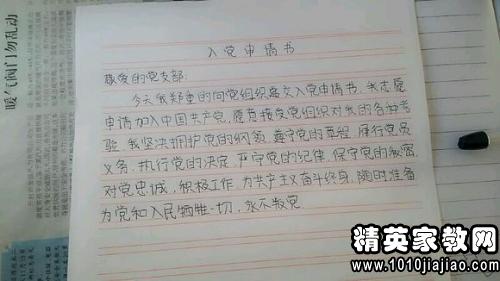 入党申请书
敬爱的党支部:
今天我郑重的向党组织递交入党申请书。我志愿
申请加入中国共产党,愿意接受党组织对我的各种考
验。我坚决拥护党的纲领,遵守党的章程,履行党员
义务,执行党的决定,严守党的纪律,保守党的秘密,
对党忠诚,积极工作,为共产主义奋斗终身,随时准备
为党和人民牺牲一切,永不叛党
暖气阀门勿乱动
精英家教网
www.1010jiajiao.com